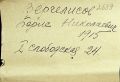 Вергелисов
Борис Николаевич
1915
I Слободская 24